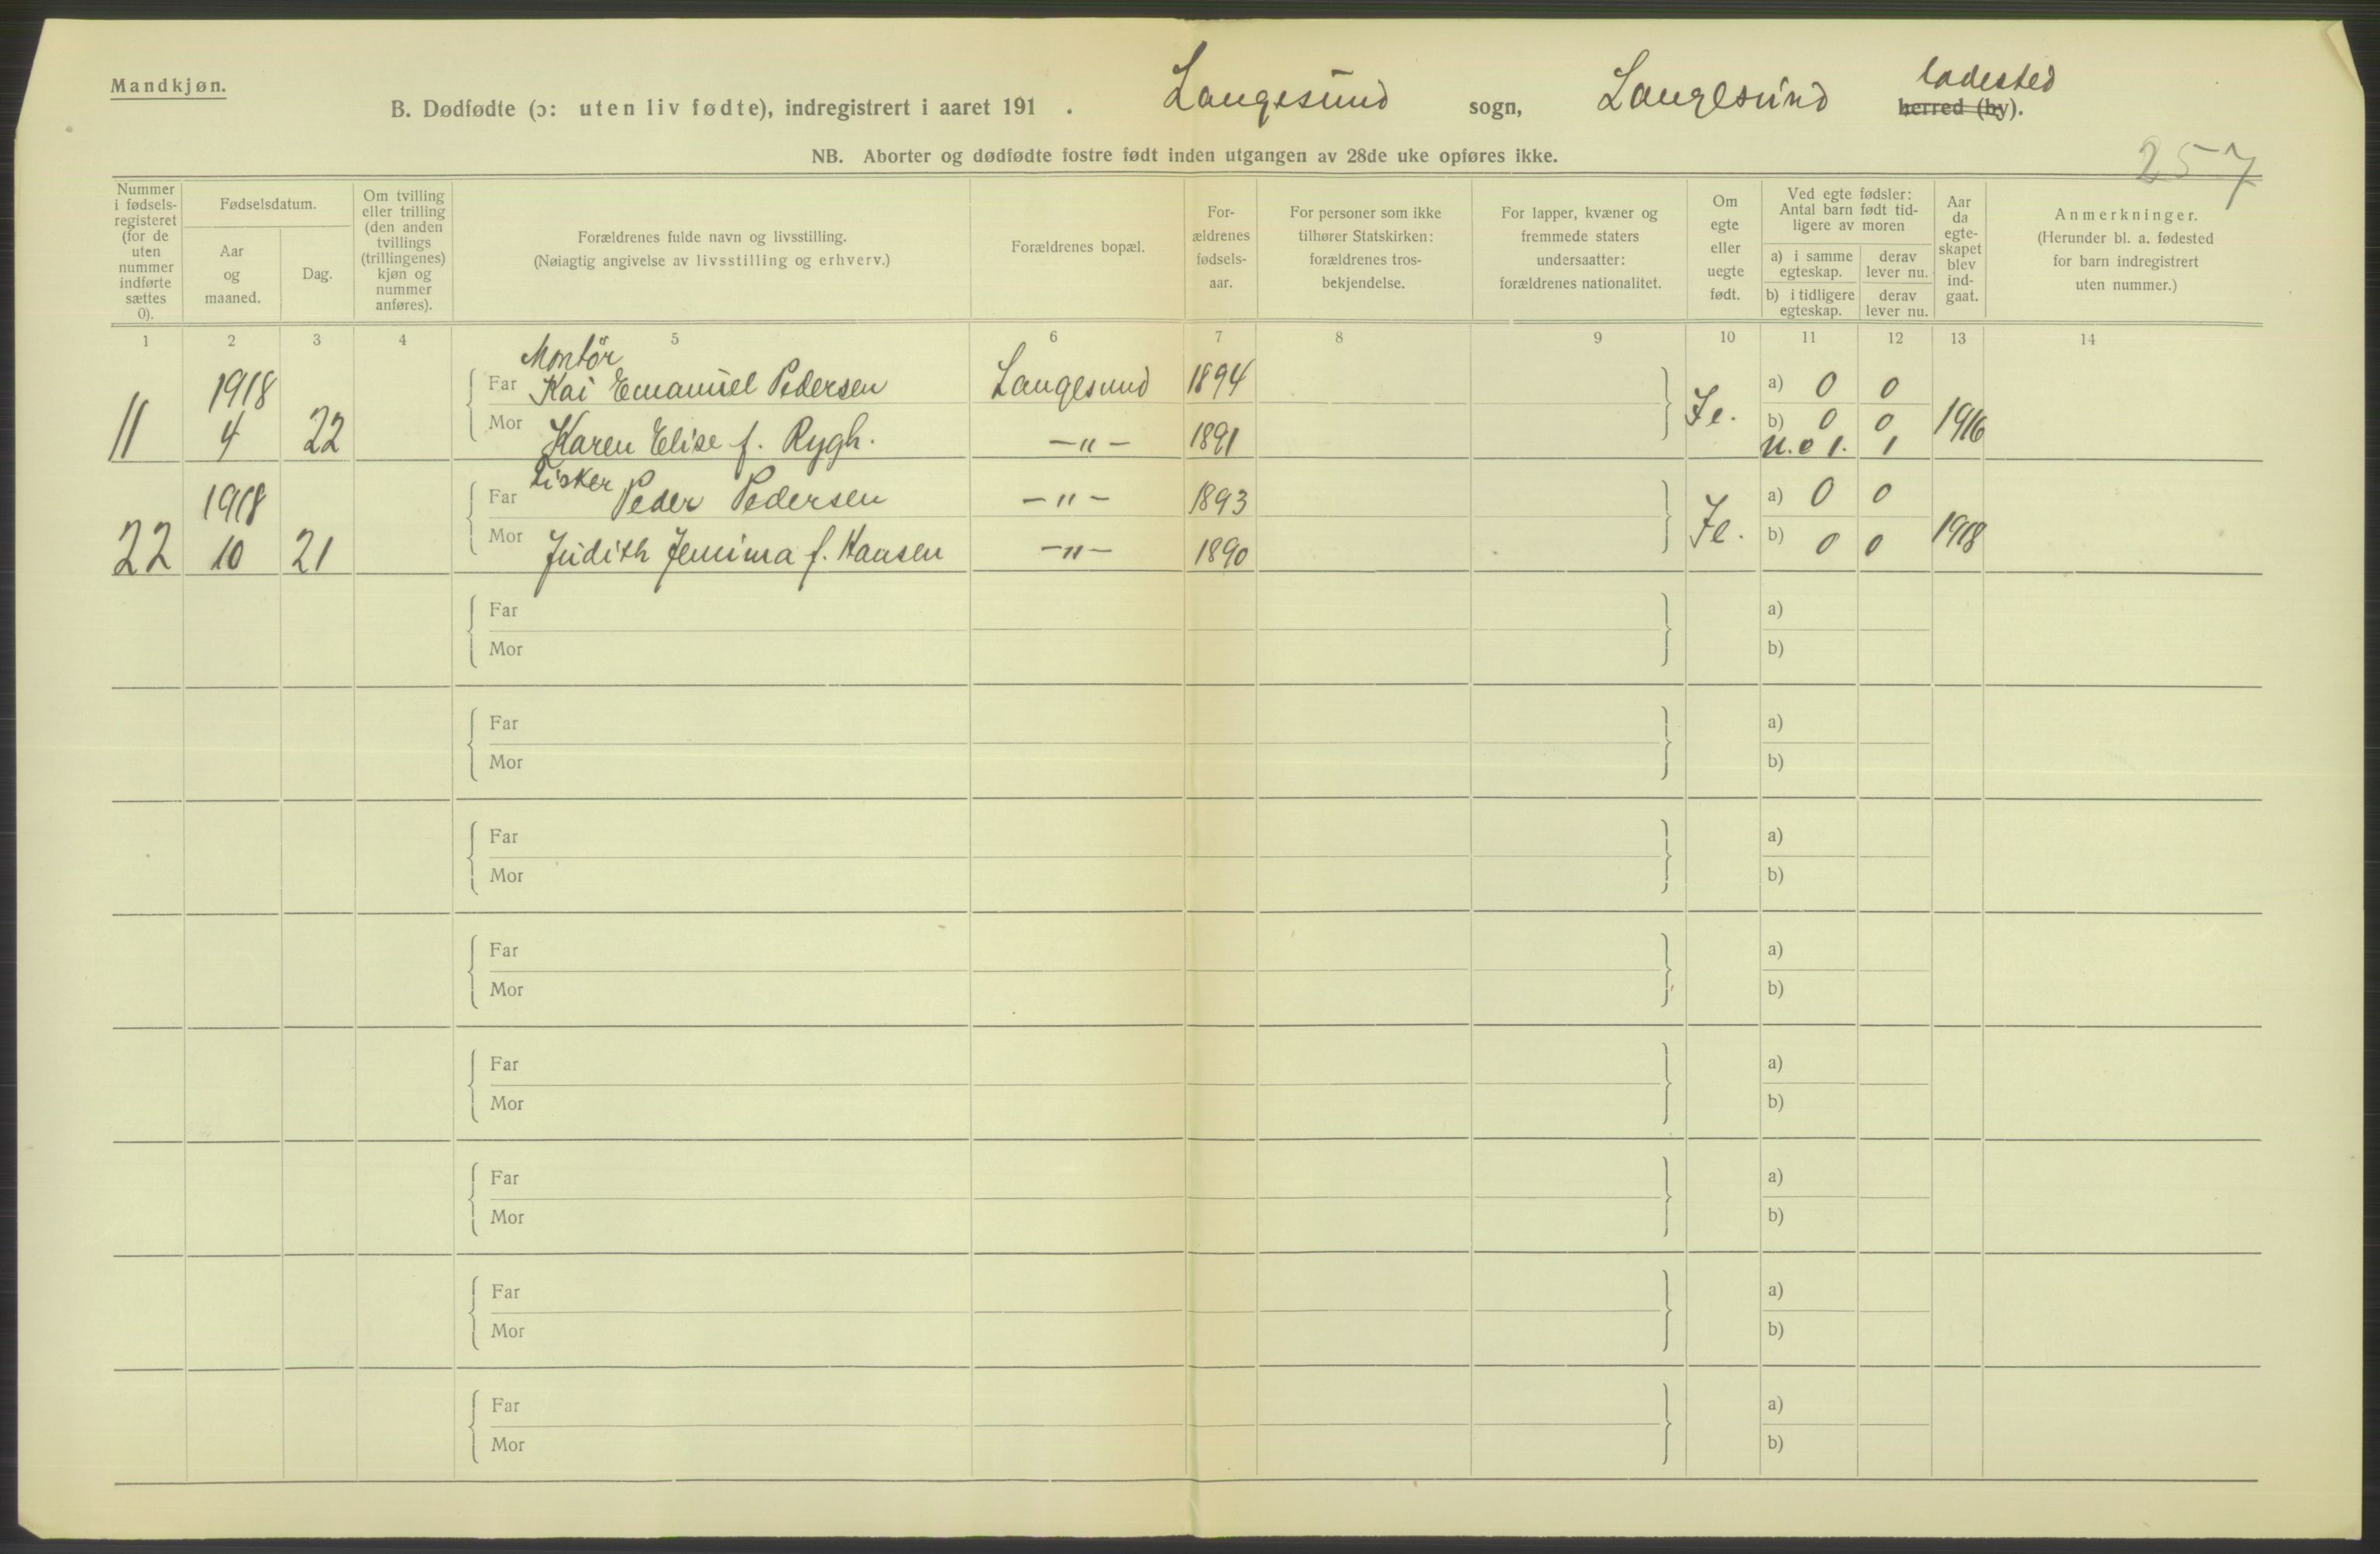 Mandkjøn.
ladested
B. Dødfødte (ɔ: uten liv fødte), indregistrert i aaret 191 . Langesund sogn, Langesund herred (by).
NB. Aborter og dødfødte fostre født inden utgangen av 28de uke opføres ikke.
257
Nummer i fødsels-registeret (for de uten nummer indførte sættes 0).
Fødselsdatum.
Aar og maaned.
Dag.
Om tvilling eller trilling (den anden tvillings (trillingenes) kjøn og nummer anføres).
Forældrenes fulde navn og livsstilling.
(Nøiagtig angivelse av livsstilling og erhverv.)
Forældrenes bopæl.
For-ældrenes fødsels-aar.
For personer som ikke tilhører Statskirken: forældrenes tros-bekjendelse.
For lapper, kvæner og fremmede staters undersaatter: forældrenes nationalitet.
Om egte eller uegte født.
Ved egte fødsler: Antal barn født tid-ligere av moren
a) i samme egteskap.
derav lever nu.
b) i tidligere egteskap.
derav lever nu.
Aar da egte-skapet blev ind-gaat.
Anmerkninger.
(Herunder bl. a. fødested for barn indregistrert uten nummer.)
1 2 3 4 5 6 7 8 9 10 11 12 13 14
Montör
1918 Far Kai Emanuel Pedersen Langesund 1894 a) 0 0
11 4 22 Mor Karen Elise f. Rygh. —"— 1891 Je. b) 0 0 1916
U. e 1. 1
Fisker
1918 Far Peder Pedersen —"— 1893 a) 0 0
22 10 21 Mor Judith Jemima f. Hansen —"— 1890 Je. b) 0 0 1918
Far a)
Mor b)
Far a)
Mor b)
Far a)
Mor b)
Far a)
Mor b)
Far a)
Mor b)
Far a)
Mor b)
Far a)
Mor b)
Far a)
Mor b)